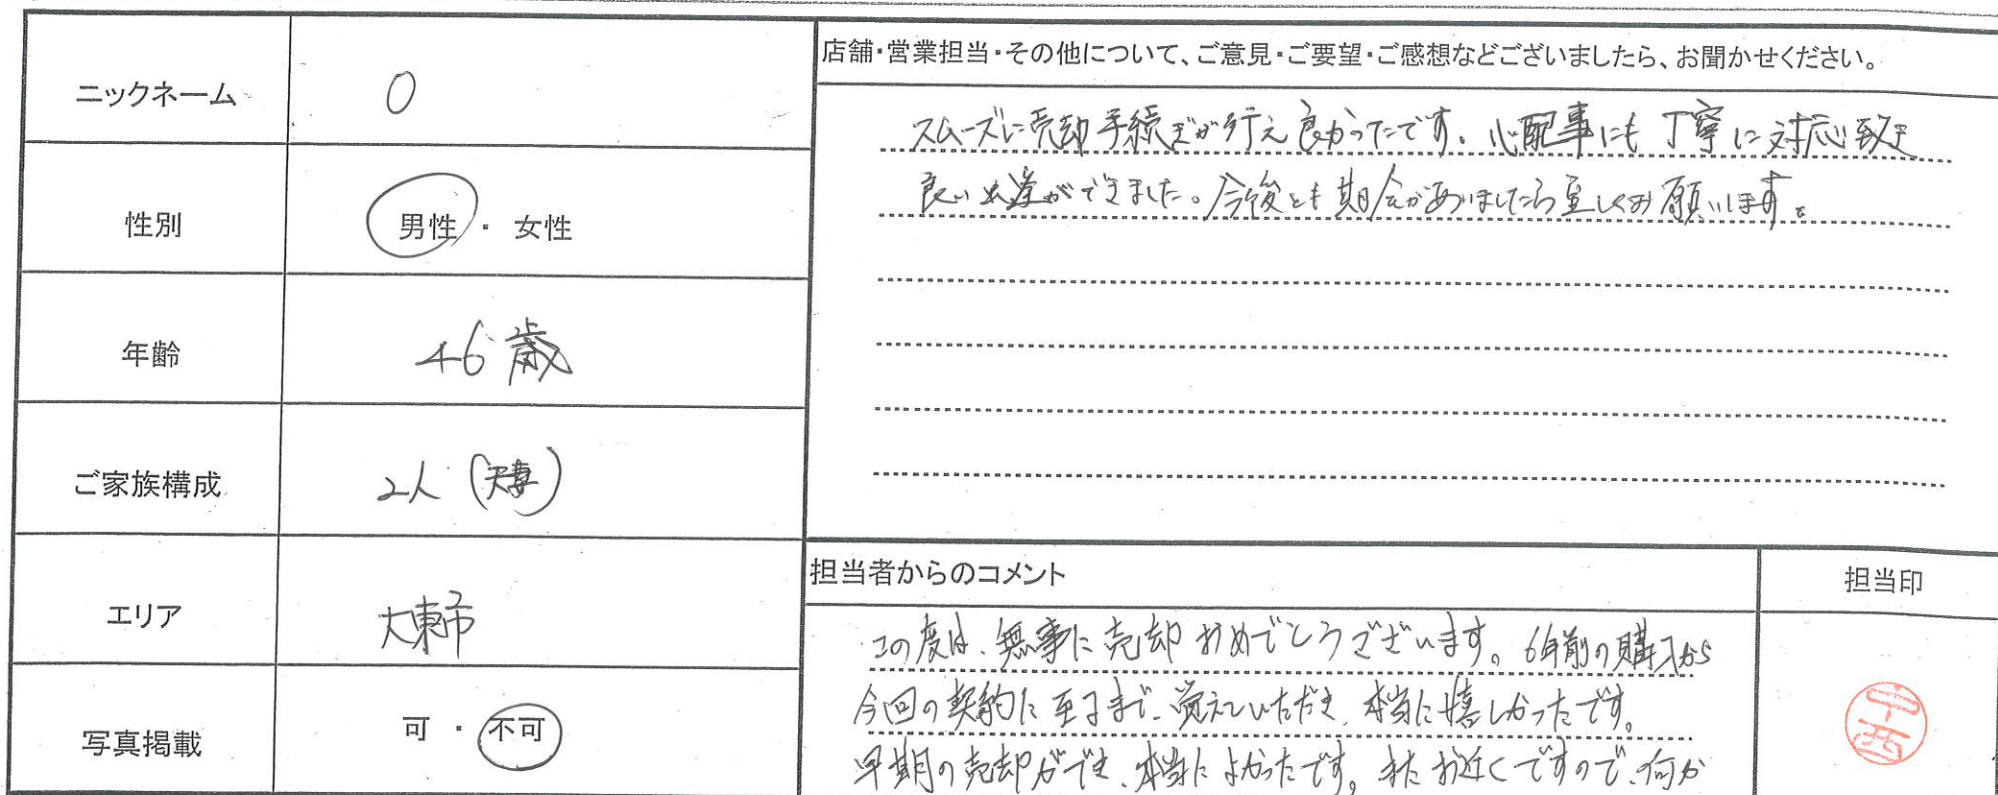 ニックネーム
O
性別
男性 ・ 女性
年齢
46歳
ご家族構成
2人 (夫妻)
エリア
大東市
写真掲載
可 ・ 不可
店舗・営業担当・その他について、ご意見・ご要望・ご感想などございましたら、お聞かせください。
スムーズに売却手続きが行え良かったです。心配事にも丁寧に対応致き
良い出逢ができました。今後とも期会がありましたら宜しくお願いします。
担当者からのコメント
この度は、無事に売却おめでとうございます。6年前の購入から
今回の契約に至るまで、覚えていただき、本当に嬉しかったです。
早期の売却ができ、本当によかったです。またお近くですので、何か
担当印